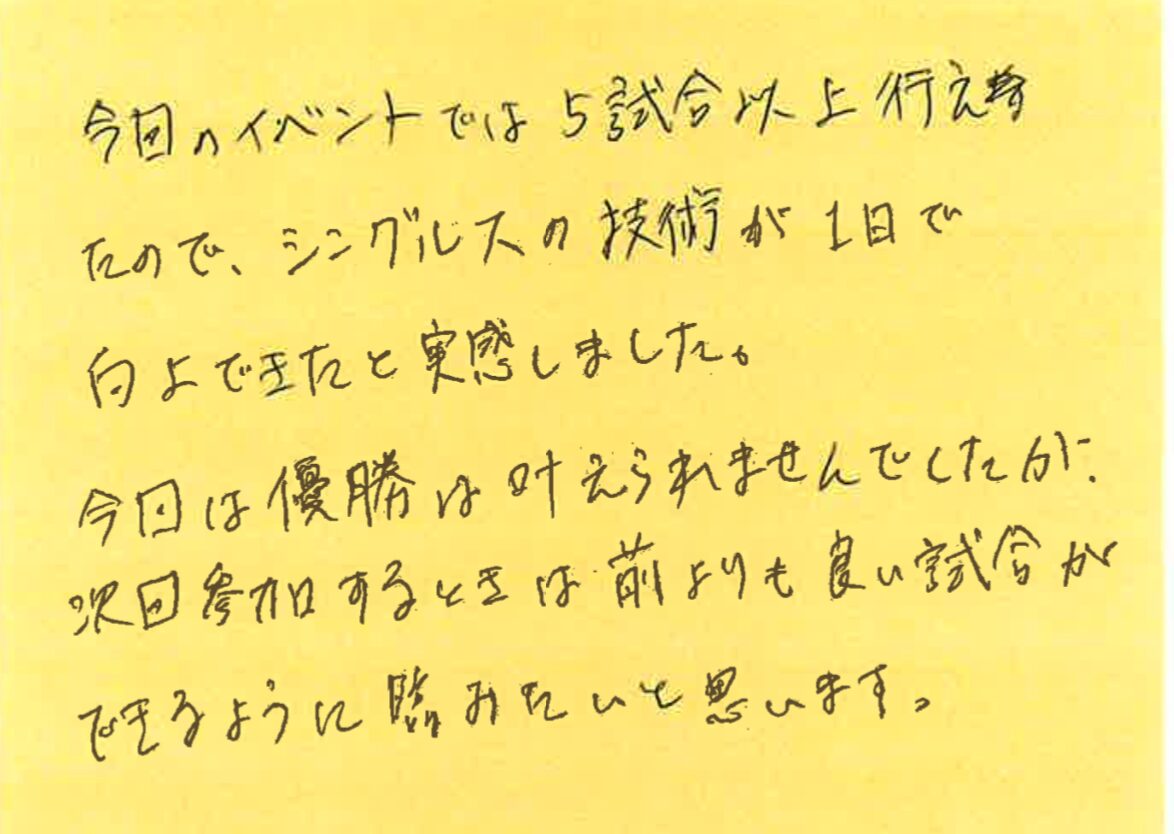 今回のイベントでは5試合以上行えま
たので、シングルスの技術が1日で
向上できたと実感しました。
今回は優勝は叶えられませんでしたが、
次回参加するときは前よりも良い試合が
できるように臨みたいと思います。